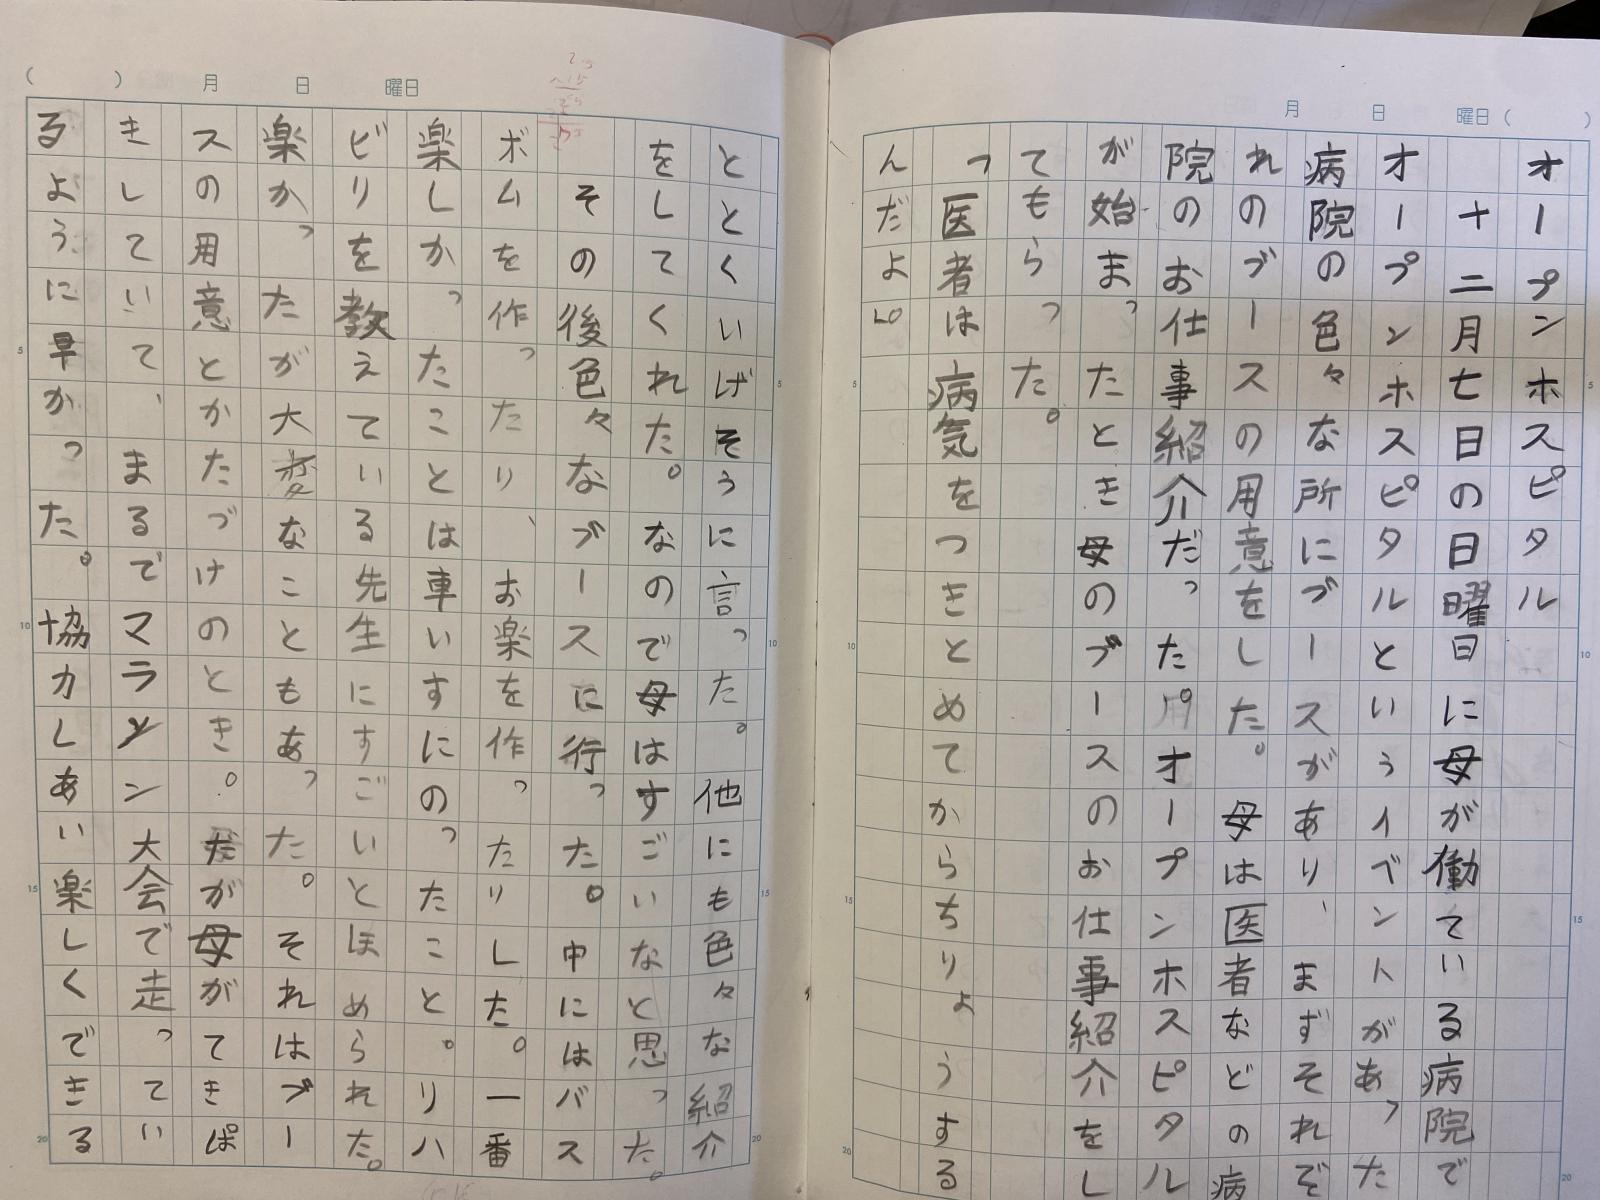 月 日 曜日 ( )
オープンホスピタル
十二月七日の日曜日に母が働ている病院で
オープンホスピタルというイベントがあった
病院の色々な所にブースがあり、まずそれぞ
れのブースの用意をした。母は医者などの病
院のお仕事紹介だった。オープンホスピタル
が始まったとき母のブースのお仕事紹介をし
てもらった。
「医者は病気をつきとめてからちりょうする
んだよ」
( ) 月 日 曜日
ととくいげそうに言った。他にも色々な紹介
をしてくれた。なので母はすごいなと思った。
その後色々なブースに行った。中にはバス
ボムを作ったり、お楽を作ったりした。一番
楽しかったことは車いすにのったこと。リハ
ビリを教えている先生にすごいとほめられた。
楽かったが大変なこともあった。それはブー
スの用意とかたづけのとき。だが母がてきぱ
きしていて、まるでマラソン大会で走ってい
るように早かった。協力しあい楽しくできる
5
10
15
20
5
10
15
20
5
10
15
20
5
10
15
20